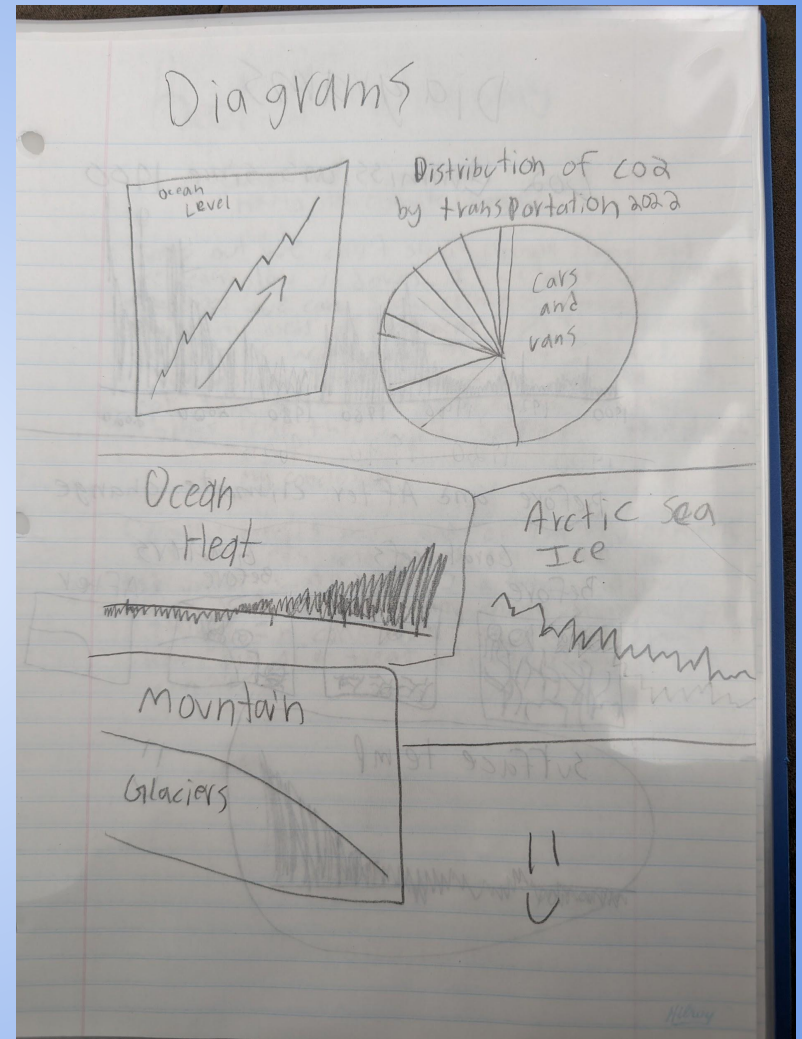 Diagrams
Ocean
Level
Distribution of CO2
by transportation 2022
Cars
and
vans
Ocean
Heat
Arctic Sea
Ice
Mountain
Glaciers
Hilroy